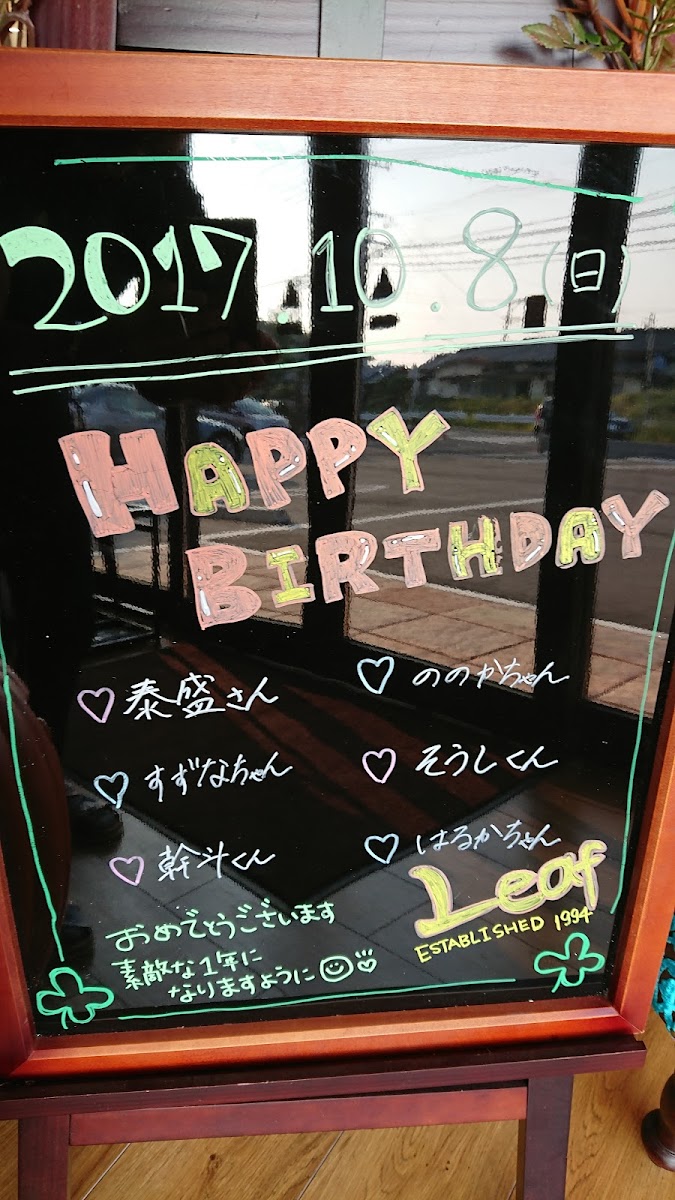 2017.10.8(日)
HAPPY
BIRTHDAY
♡泰盛さん
♡ののかちゃん
♡すずなちゃん
♡そうしくん
♡幹斗くん
♡はるかちゃん
おめでとうございます
素敵な1年に
なりますように
Leaf
ESTABLISHED 1994